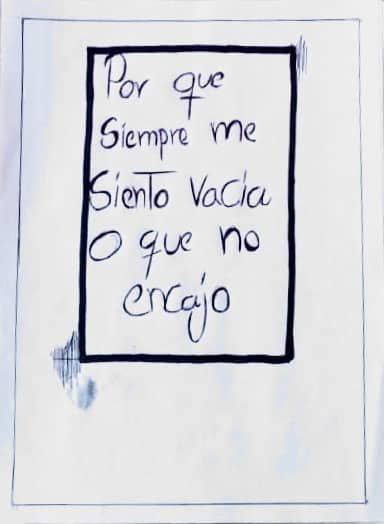 Por que
Siempre me
Siento vacia
o que no
encajo